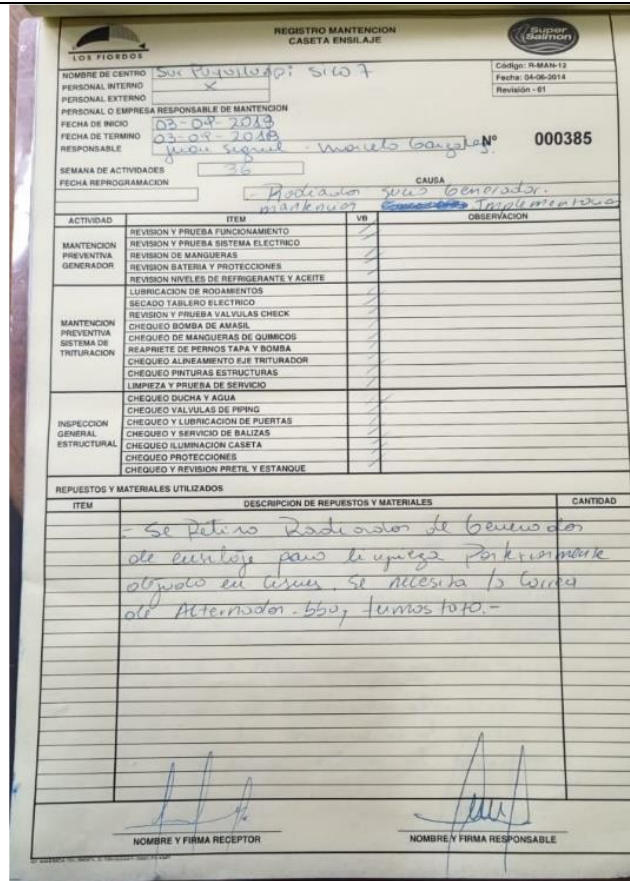 LOS FIORDOS
REGISTRO MANTENCION
CASETA ENSILAJE
Super
Salmon
NOMBRE DE CENTRO
Código: R-MAN-12
PERSONAL INTERNO X
Fecha: 04-06-2014
PERSONAL EXTERNO
Revisión - 01
PERSONAL O EMPRESA RESPONSABLE DE MANTENCION
FECHA DE INICIO 03-09-2019
FECHA DE TERMINO 03-09-2019
RESPONSABLE Juan - Marcelo Nº 000385
SEMANA DE ACTIVIDADES 36
FECHA REPROGRAMACION CAUSA
- Radiador sucio Generador.
mantencion
ACTIVIDAD ITEM VB OBSERVACION
MANTENCION PREVENTIVA GENERADOR
REVISION Y PRUEBA FUNCIONAMIENTO
REVISION Y PRUEBA SISTEMA ELECTRICO
REVISION DE MANGUERAS
REVISION BATERIA Y PROTECCIONES
REVISION NIVELES DE REFRIGERANTE Y ACEITE
MANTENCION PREVENTIVA SISTEMA DE TRITURACION
LUBRICACION DE RODAMIENTOS
SECADO TABLERO ELECTRICO
REVISION Y PRUEBA VALVULAS CHECK
CHEQUEO BOMBA DE AMASIL
CHEQUEO DE MANGUERAS DE QUIMICOS
REAPRIETE DE PERNOS TAPA Y BOMBA
CHEQUEO ALINEAMIENTO EJE TRITURADOR
CHEQUEO PINTURAS ESTRUCTURAS
LIMPIEZA Y PRUEBA DE SERVICIO
INSPECCION GENERAL ESTRUCTURAL
CHEQUEO DUCHA Y AGUA
CHEQUEO VALVULAS DE PIPING
CHEQUEO Y LUBRICACION DE PUERTAS
CHEQUEO Y SERVICIO DE BALIZAS
CHEQUEO ILUMINACION CASETA
CHEQUEO PROTECCIONES
CHEQUEO Y REVISION PRETIL Y ESTANQUE
REPUESTOS Y MATERIALES UTILIZADOS
ITEM DESCRIPCION DE REPUESTOS Y MATERIALES CANTIDAD
- Se Retiro Radiador de Generador
de ensilaje para limpieza Posteriormente
en Se necesita la Correa
de Alternador.
NOMBRE Y FIRMA RECEPTOR
NOMBRE Y FIRMA RESPONSABLE